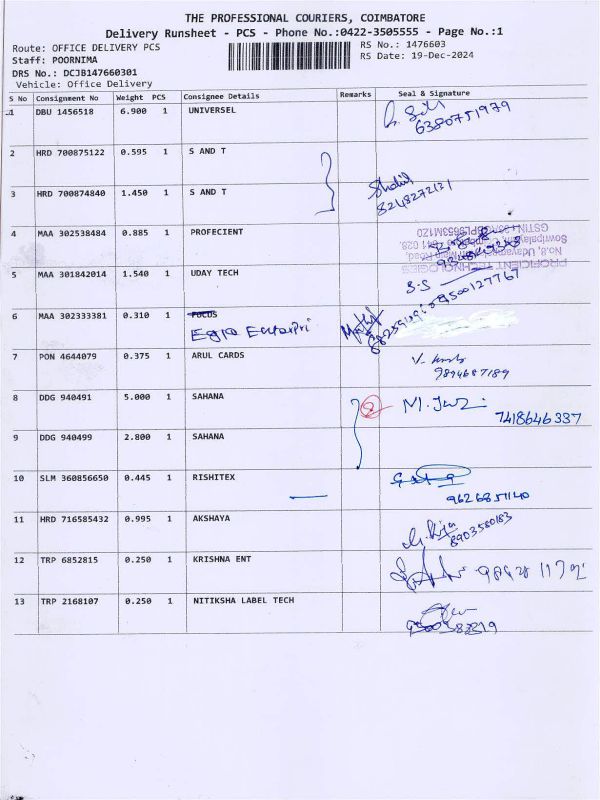 THE PROFESSIONAL COURIERS, COIMBATORE
Delivery Runsheet - PCS - Phone No.:0422-3505555 - Page No.:1
Route: OFFICE DELIVERY PCS RS No.: 1476603
Staff: POORNIMA RS Date: 19-Dec-2024
DRS No.: DCJB147660301
Vehicle: Office Delivery
S No Consignment No Weight PCS Consignee Details Remarks Seal & Signature
1 DBU 1456518 6.900 1 UNIVERSEL
6380751979
2 HRD 700875122 0.595 1 S AND T
3 HRD 700874840 1.450 1 S AND T
4 MAA 302538484 0.885 1 PROFECIENT
PROFICIENT TECHNOLOGIES
No.8, Udayampalayam Main Road,
5 MAA 301842014 1.540 1 UDAY TECH
S.S 9500127767
6 MAA 302333381 0.310 1 FOCUS
7 PON 4644079 0.375 1 ARUL CARDS
9894687189
8 DDG 940491 5.000 1 SAHANA
7418646337
9 DDG 940499 2.800 1 SAHANA
10 SLM 360856650 0.445 1 RISHITEX
9626851140
11 HRD 716585432 0.995 1 AKSHAYA
8903580183
12 TRP 6852815 0.250 1 KRISHNA ENT
13 TRP 2168107 0.250 1 NITIKSHA LABEL TECH